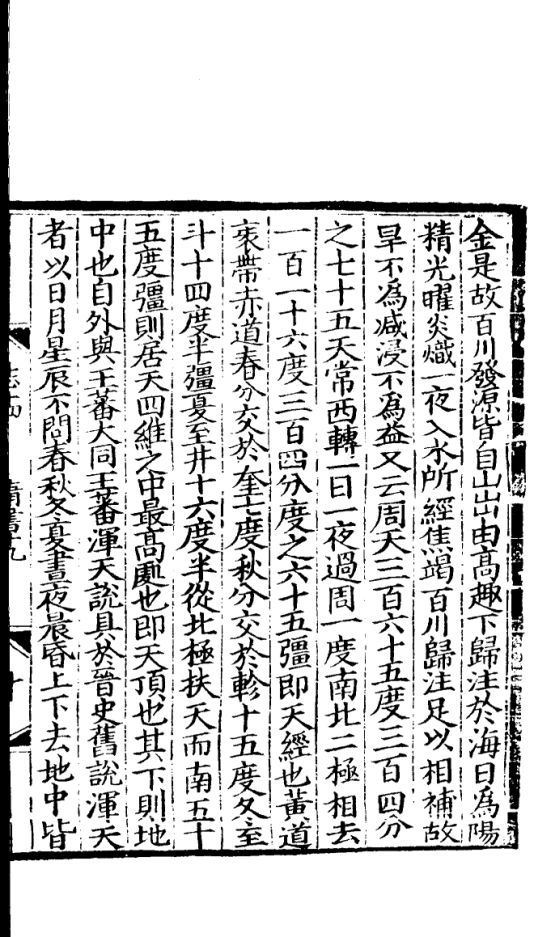 金是故百川發源皆自山出由高趣下歸注於海日為陽
精光曜炎熾一夜入水所經焦竭百川歸注足以相補故
旱不為減浸不為益又云周天三百六十五度三百四分
之七十五天常西轉一日一夜過周一度南北二極相去
一百一十六度三百四分度之六十五彊即天經也黃道
衺帶赤道春分交於奎七度秋分交於軫十五度冬至
斗十四度半彊夏至井十六度半從北極扶天而南五十
五度彊則居天四維之中最高處也即天頂也其下則地
中也自外與王蕃大同王蕃渾天說具於晉史舊說渾天
者以日月星辰不問春秋冬夏晝夜晨昏上下去地中皆